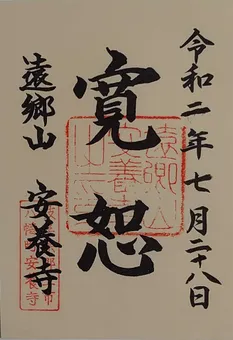 令和二年七月二十八日
寛恕
遠郷山
安養寺
遠郷山
安養寺